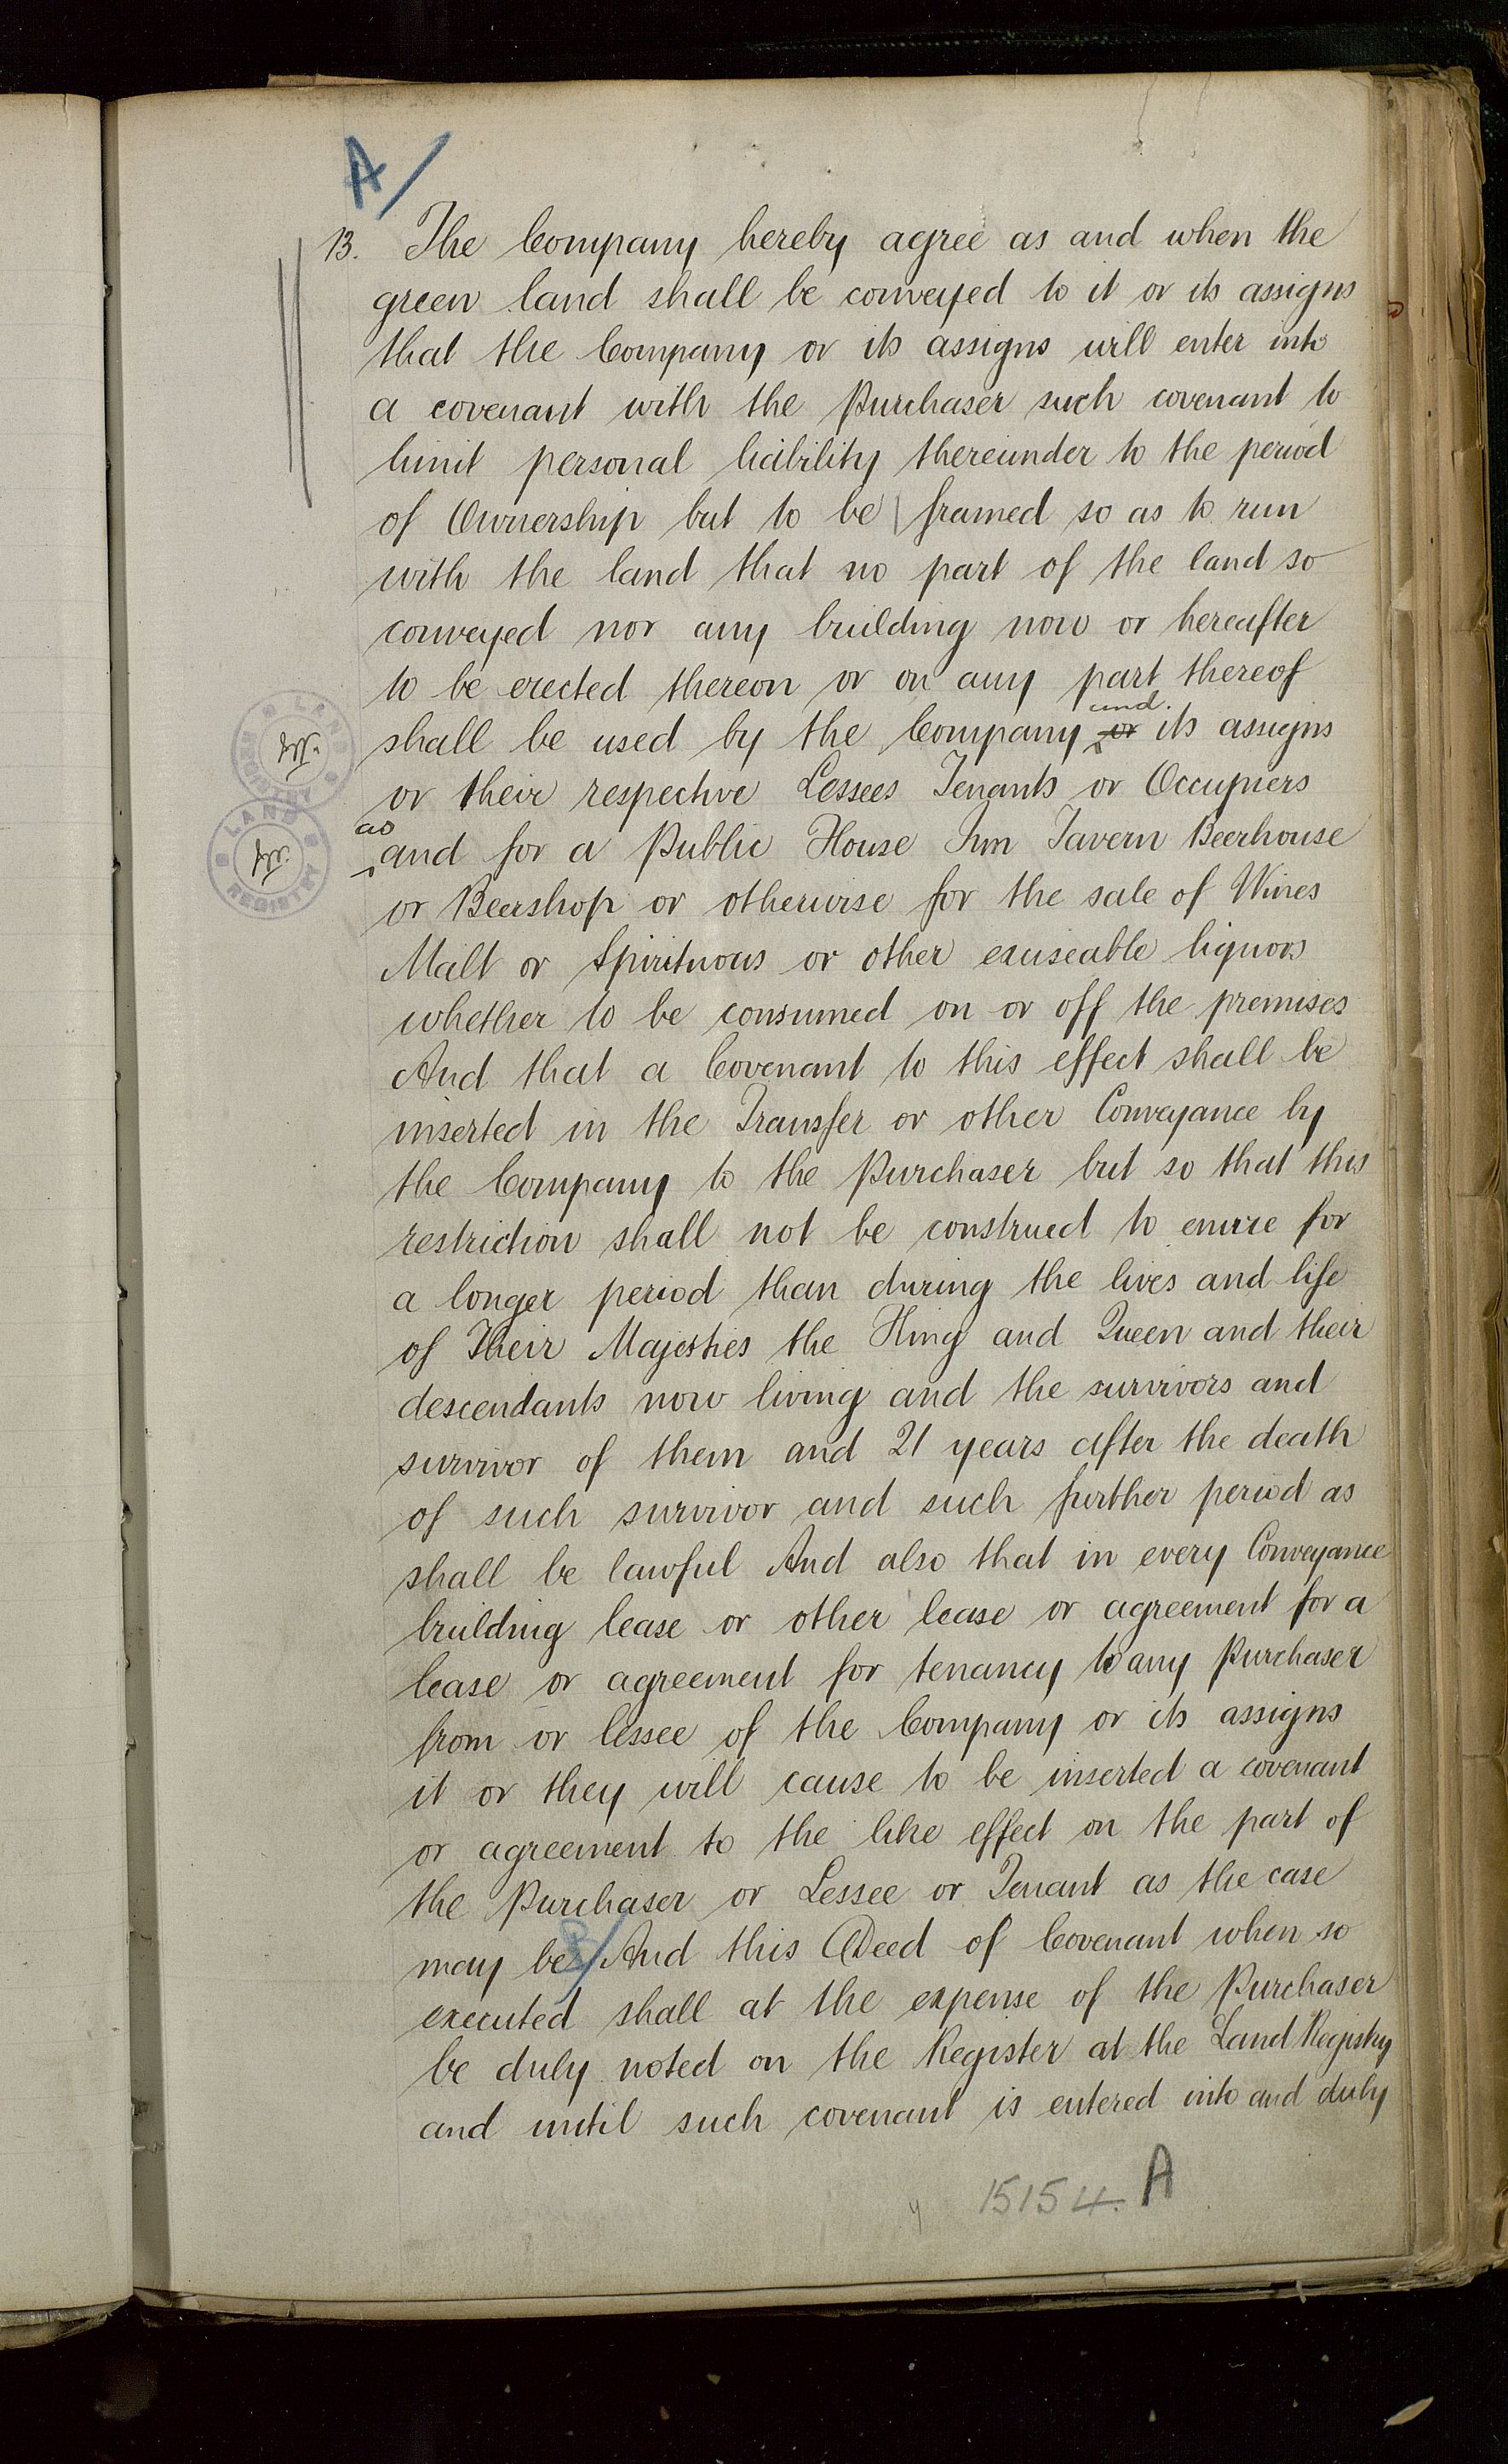 A/
13. The Company hereby agree as and when the
green land shall be conveyed to it or its assigns
that the Company or its assigns will enter into
a covenant with the Purchaser such covenant to
limit personal liability thereunder to the period
of Ownership but to be | framed so as to run
with the land that no part of the land so
conveyed nor any building now or hereafter
to be erected thereon or on any part thereof
and.
shall be used by the Company or its assigns
or their respective Lessees Tenants or Occupiers
as
and for a Public House Inn Tavern Beerhouse
or Beershop or otherwise for the sale of Wines
Malt or Spirituous or other exciseable liquors
whether to be consumed on or off the premises
And that a Covenant to this effect shall be
inserted in the Transfer or other Conveyance by
the Company to the Purchaser but so that this
restriction shall not be construed to enure for
a longer period than during the lives and life
of Their Majesties the King and Queen and their
descendants now living and the survivors and
survivor of them and 21 years after the death
of such survivor and such further period as
shall be lawful And also that in every Conveyance
building lease or other lease or agreement for a
lease or agreement for tenancy to any Purchaser
from or lessee of the Company or its assigns
it or they will cause to be inserted a covenant
or agreement to the like effect on the part of
the Purchaser or Lessee or Tenant as the case
may be B/ And this Deed of Covenant when so
executed shall at the expense of the Purchaser
be duly noted on the Register at the Land Registry
and until such covenant is entered into and duly
15154. A
LAND REGISTRY
LAND REGISTRY